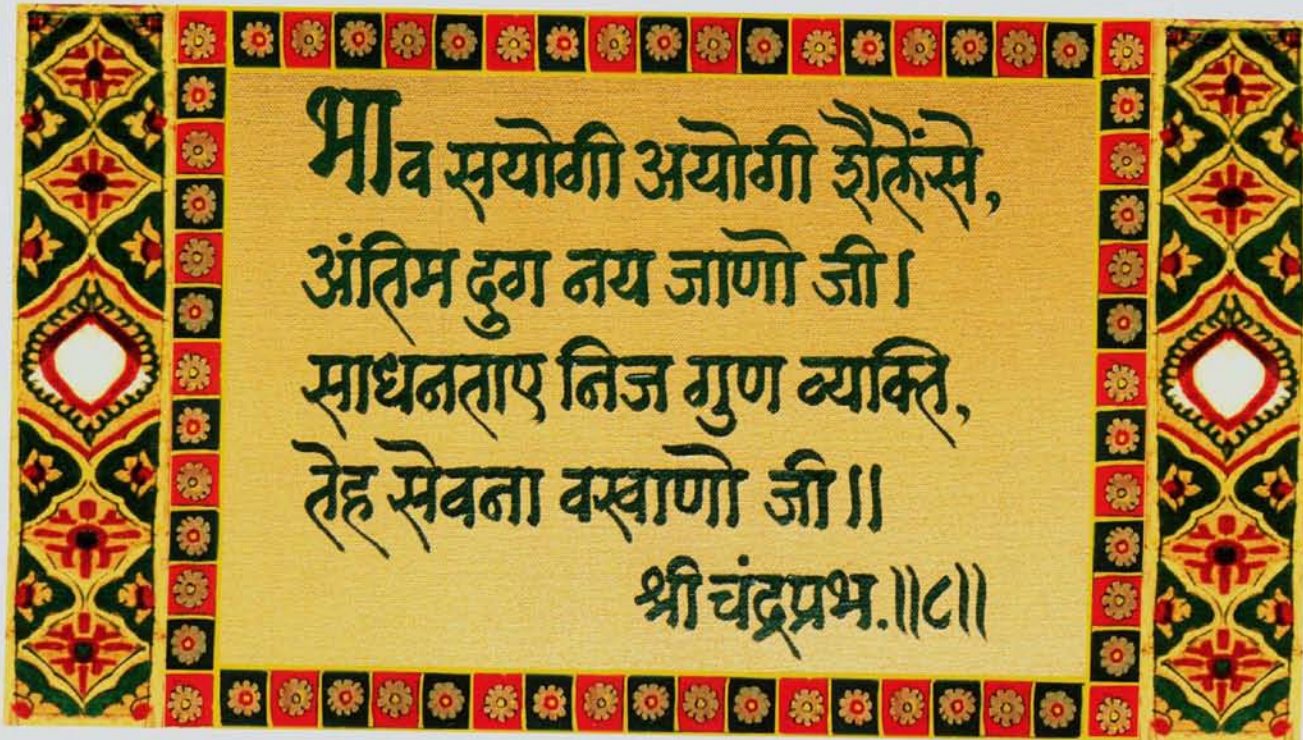 भाव सयोगी अयोगी शैलेंसे,
अंतिम दुग नय जाणो जी।
साधनताए निज गुण व्यक्ति,
तेह सेवना वखाणो जी॥
श्री चंद्रप्रभ.॥८॥